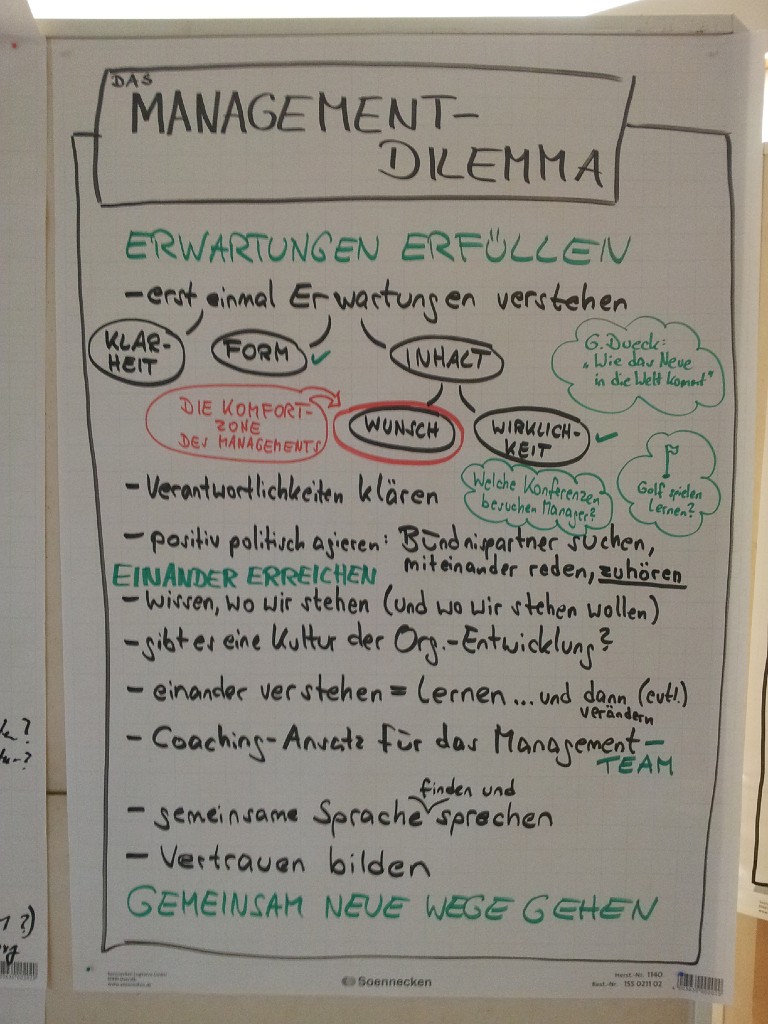 DAS
MANAGEMENT-
DILEMMA
ERWARTUNGEN ERFÜLLEN
- erst einmal Erwartungen verstehen
KLAR-
HEIT
FORM ✓
INHALT
G. Dueck:
"Wie das Neue
in die Welt kommt"
DIE KOMFORT-
ZONE
DES MANAGEMENTS
WUNSCH
WIRKLICH-
KEIT ✓
Golf spielen
lernen?
Welche Konferenzen
besuchen Manager?
- Verantwortlichkeiten klären
- positiv politisch agieren: Bündnispartner suchen,
miteinander reden, zuhören
EINANDER ERREICHEN
- wissen, wo wir stehen (und wo wir stehen wollen)
- gibt es eine Kultur der Org.-Entwicklung?
- einander verstehen = Lernen ... und dann (evtl.)
verändern
- Coaching-Ansatz für das Management-
TEAM
finden und
- gemeinsame Sprache sprechen
- Vertrauen bilden
GEMEINSAM NEUE WEGE GEHEN
Soennecken
Herst.-Nr. 1140
Best.-Nr. 155 0211 02